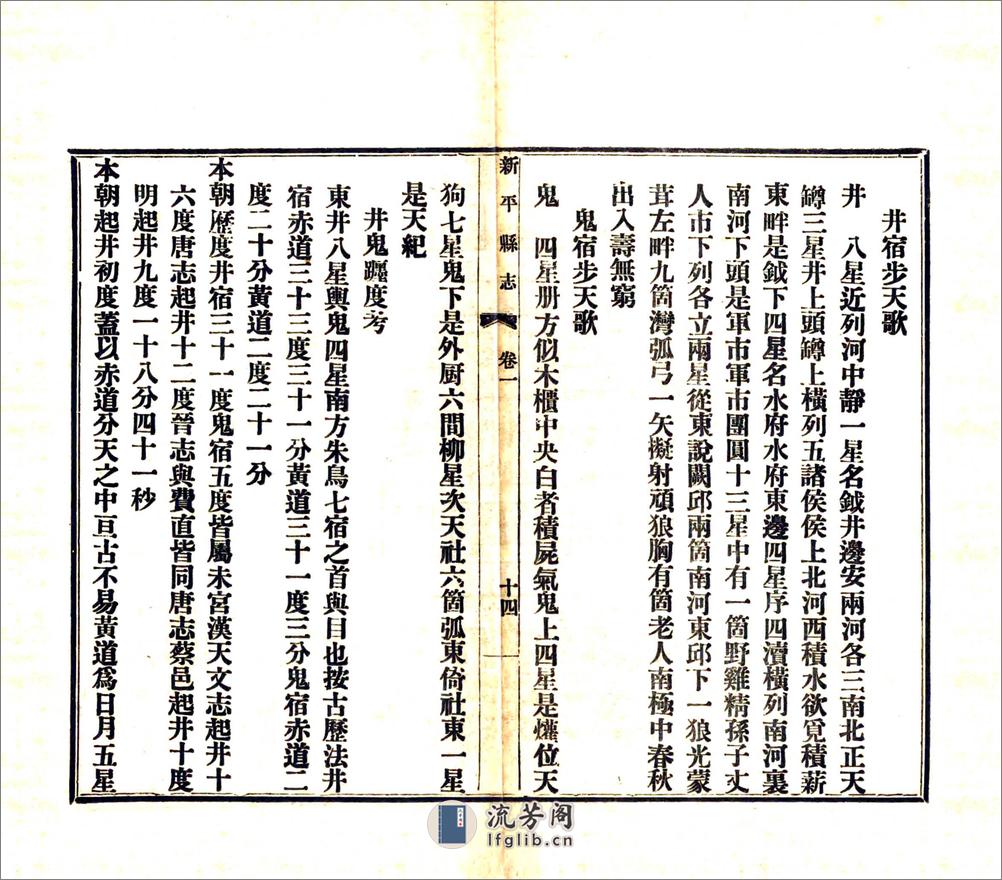 井宿步天歌
井　八星近列河中靜一星名鉞井邊安兩河各三南北正天
鐏三星井上頭鐏上橫列五諸侯侯上北河西積水欲覓積薪
東畔是鉞下四星名水府水府東邊四星序四瀆橫列南河裏
南河下頭是軍市軍市團圓十三星中有一箇野雞精孫子丈
人市下列各立兩星從東說闕邱兩箇南河東邱下一狼光蒙
茸左畔九箇灣弧弓一矢擬射頑狼胸有箇老人南極中春秋
出入壽無窮
鬼宿步天歌
鬼　四星册方似木櫃中央白者積屍氣鬼上四星是爟位天
新平縣志　卷一　十四
狗七星鬼下是外厨六間柳星次天社六箇弧東倚社東一星
是天紀
井鬼躔度考
東井八星輿鬼四星南方朱鳥七宿之首與目也按古歷法井
宿赤道三十三度三十一分黃道三十一度三分鬼宿赤道二
度二十分黃道二度二十一分
本朝歷度井宿三十一度鬼宿五度皆屬未宮漢天文志起井十
六度唐志起井十二度晉志與費直皆同唐志蔡邕起井十度
明起井九度一十八分四十一秒
本朝起井初度蓋以赤道分天之中亘古不易黃道爲日月五星
流芳阁
lfglib.cn